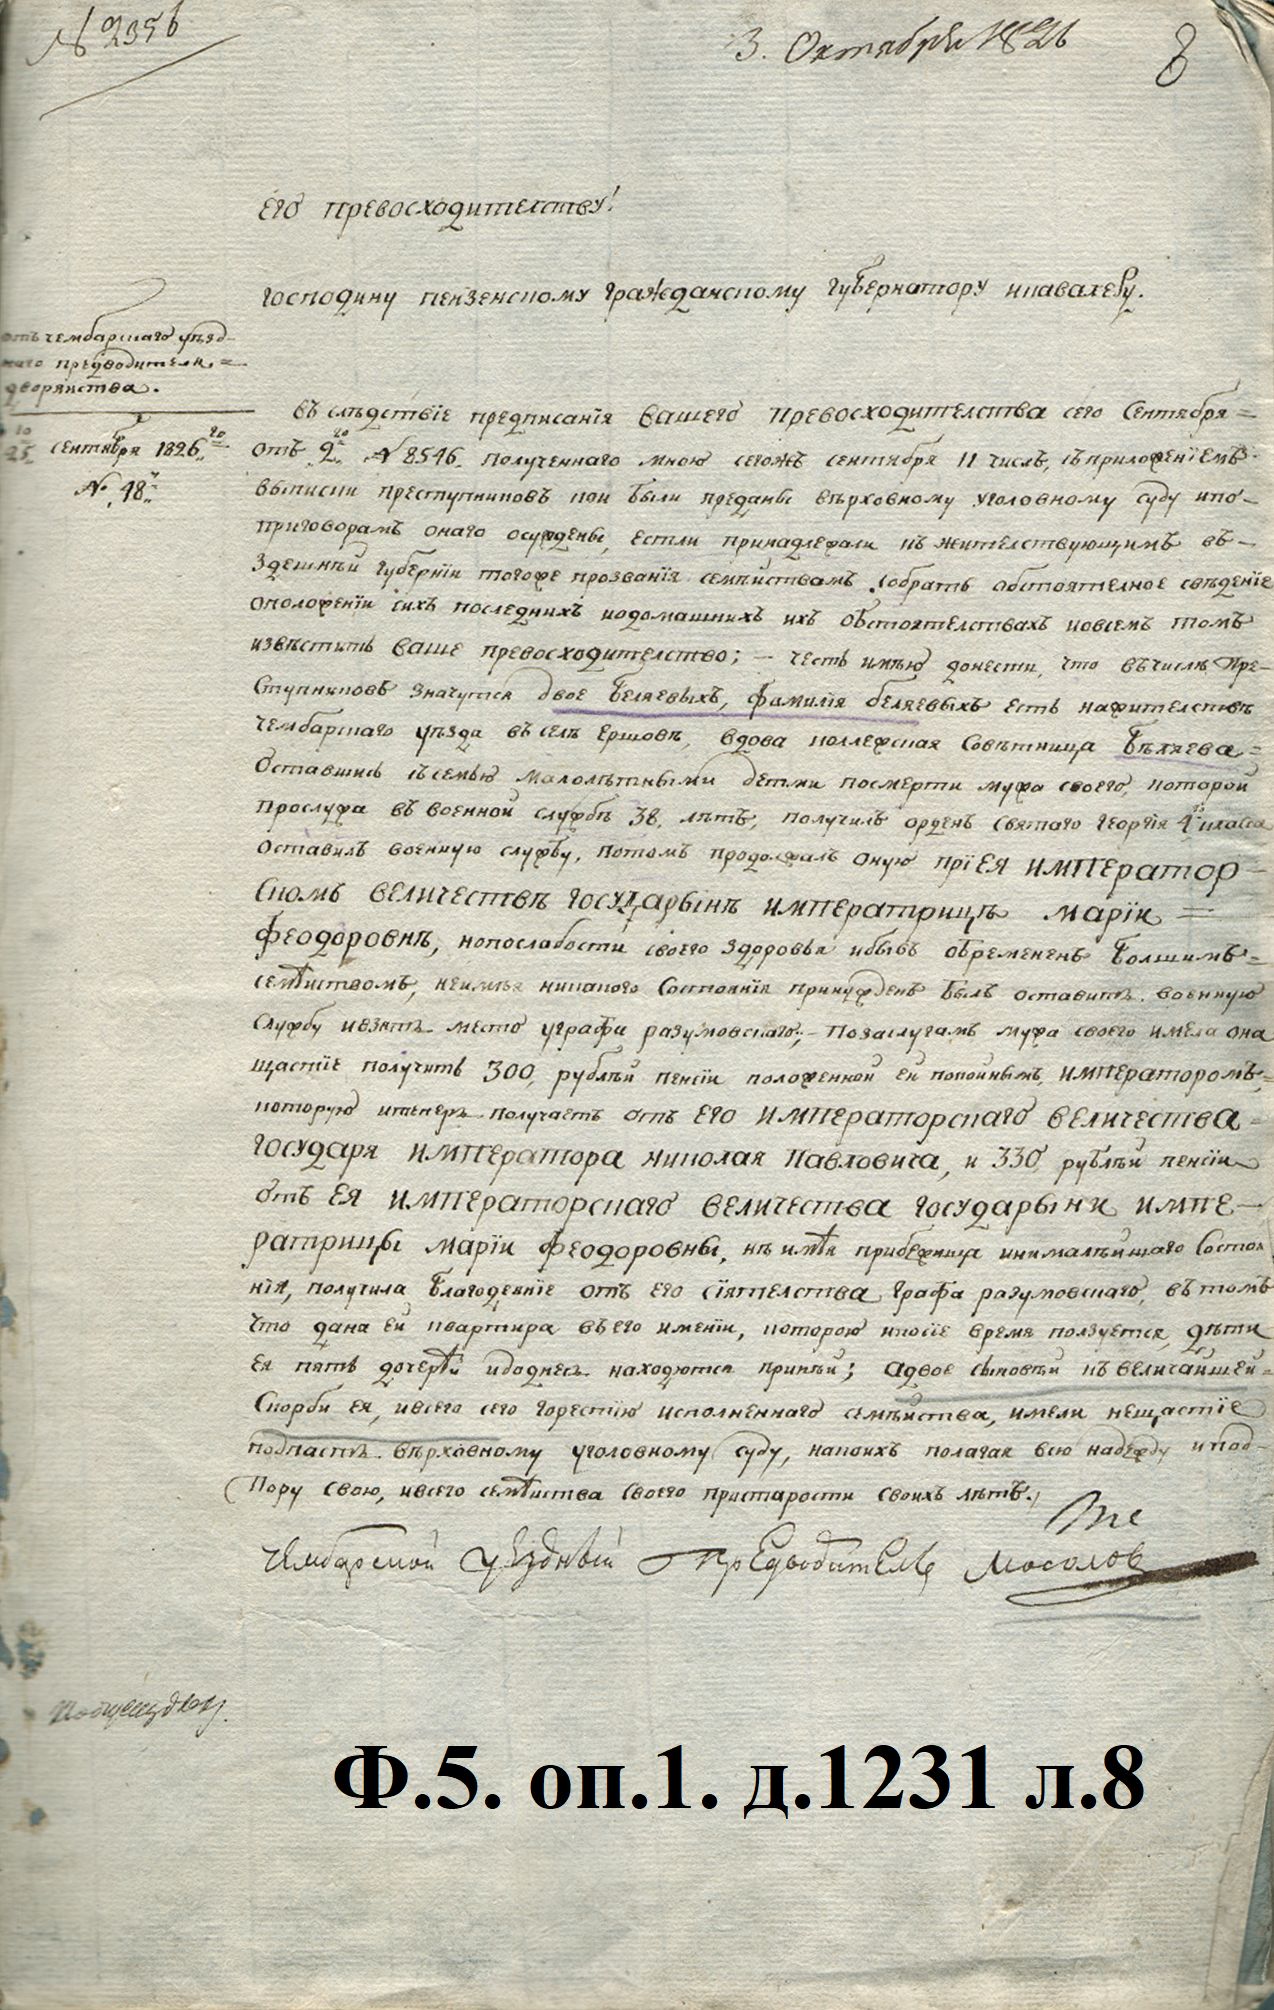 № 2356
3. Октября 1826
8
Его превосходителству!
Господину пензенскому гражданскому губернатору и кавалеру.
отъ чембарскаго уѣзд-
наго предводителя =
дворянства.
25 го сентября 1826 го
№. 48 й
Въ слѣдствіе предписанія вашего превосходителства сего Сентября =
отъ 2 го № 8546. полученнаго мною сегожъ сентября 11 числъ, съ приложеніемъ
выписки преступниковъ кои были преданы вѣрховному уголовному суду ипо-
приговорамъ онаго осуждены, естли принадлежали къ жителствующимъ въ-
Здешнѣй губерніи тогоже прозванія семѣйствамъ, собрать обстоятелное свѣденіе
оположеніи сихъ последнихъ идомашнихъ ихъ обстоятелствахъ иовсемъ томъ
извѣстить ваше превосходителство; — честь имѣю донести, что въ числѣ пре-
Ступниковъ значутся двое Беляевыхъ, фамилія беляевыхъ есть нажителствѣ
Чембарскаго уѣзда въ селѣ Ершовѣ, вдова коллежская Совѣтница Бѣляева =
Оставшись съ семью малолѣтными детми посмерти мужа своего, которой
прослужа въ военной службѣ 38. лѣтъ, получилъ орденъ святаго георгія 4 го класса
Оставилъ военную службу, потомъ продолжалъ оную при ЕЯ ИМПЕРАТОР-
Скомъ ВЕЛИЧЕСТВѢ ГОСУДАРЫНѢ ИМПЕРАТРИЦѢ МАРІИ =
ФЕОДОРОВНѢ, нопослабости своего здоровья ибывъ обремененъ болшимъ =
семѣйствомъ, неимѣя никакого Состоянія принужденъ былъ оставить военную
Службу ивзять место уграфа разумовскаго; — Позаслугамъ мужа своего имела она
щастіе получить 300, рублѣй пенсіи положенной ей покойнымъ, ИМПЕРАТОРОМЪ,
которую итеперь получаетъ отъ ЕГО ИМПЕРАТОРСКАГО ВЕЛИЧЕСТВА =
ГОСУДАРЯ ИМПЕРАТОРА НИКОЛАЯ ПАВЛОВИЧА, и 330, рублѣй пенсіи
отъ ЕЯ ИМПЕРАТОРСКАГО ВЕЛИЧЕСТВА ГОСУДАРЫНИ ИМПЕ-
РАТРИЦЫ МАРІИ ФЕОДОРОВНЫ, не имѣя прибежища инималѣйшаго Состоя
нія, получила благодеяніе отъ его сіятелства графа разумовскаго, въ томъ
Что дана ей квартира въ его имѣніи, которою ипосіе время ползуется, дѣти
ея пять дочерѣй идоднесь находются принѣй; адвое сыновѣй къ величайшей =
Скорби ея, ивсего сего горестію исполненнаго семѣйства, имели нещастіе
подпасть вѣрховному уголовному суду, накоихъ полагая всю надежду ипод-
Пору свою, ивсего семѣйства своего пристарости своихъ лѣтъ.
Чембарской уездный Предводитель Мосолов
Ф.5. оп.1. д.1231 л.8